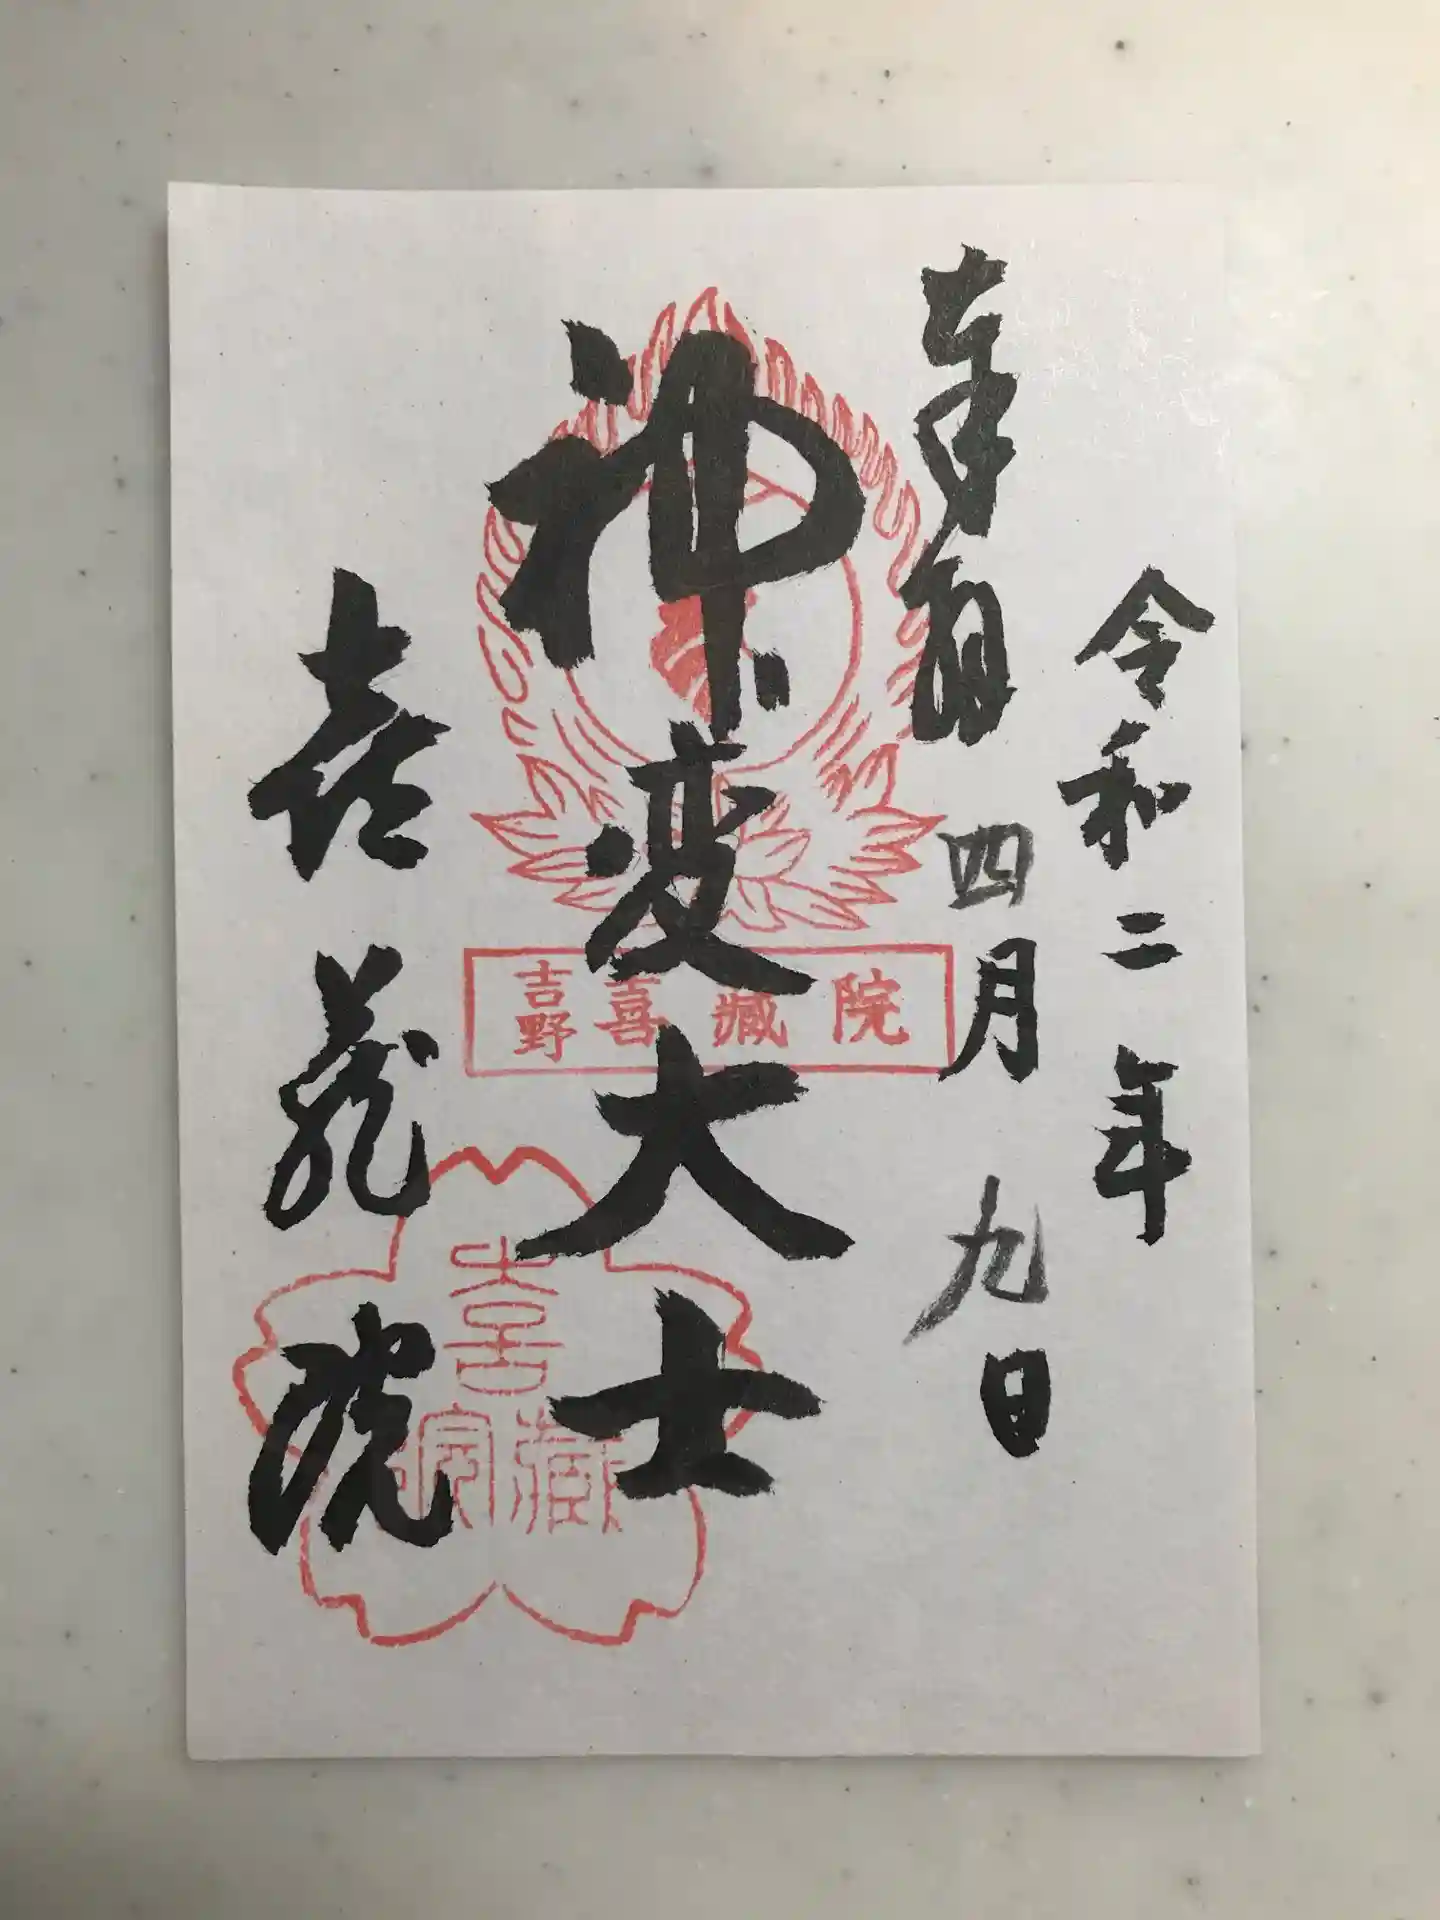 令和二年
奉拝 四月九日
神変大士
喜蔵院
吉野喜藏院
喜藏院